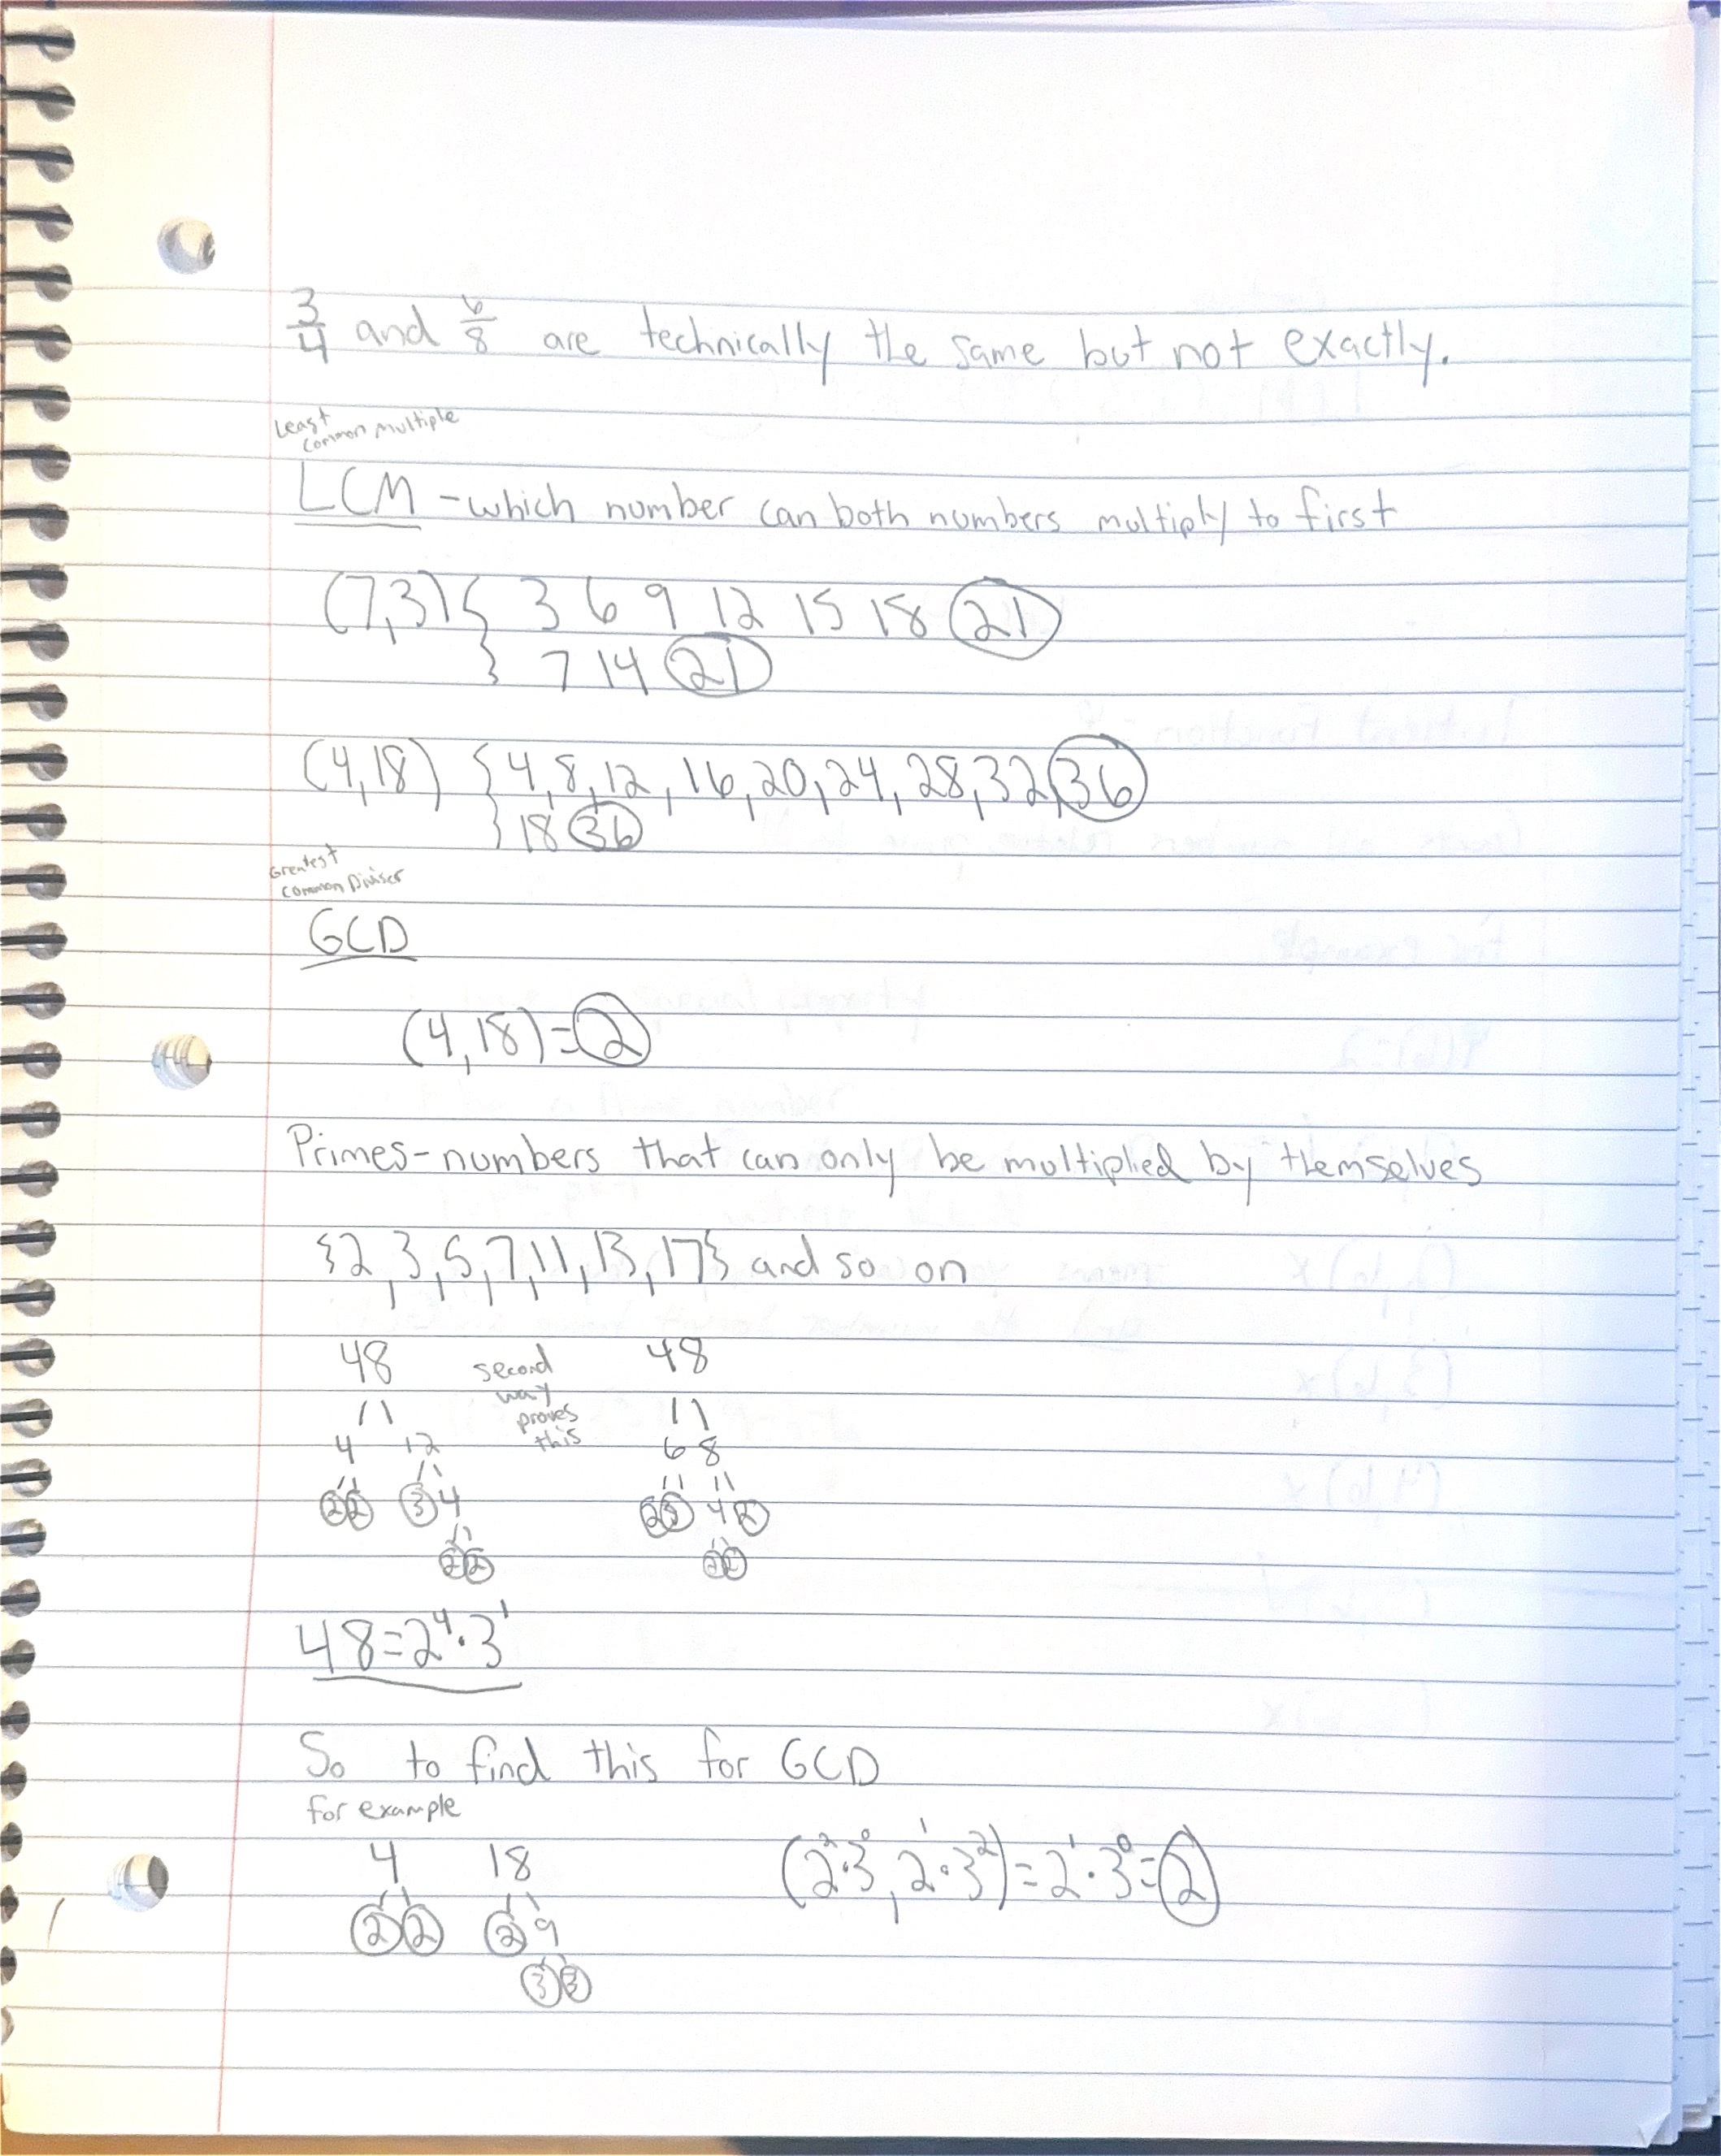 3/4 and 6/8 are technically the same but not exactly.
Least
common multiple
LCM - which number can both numbers multiply to first
(7,3) { 3 6 9 12 15 18 21
} 7 14 21
(4,18) { 4, 8, 12, 16, 20, 24, 28, 32, 36
} 18 36
Greatest
common Diviser
GCD
(4,18) = 2
Primes - numbers that can only be multiplied by themselves
{2, 3, 5, 7, 11, 13, 17} and so on
48 second 48
way
proves
4 12 this 6 8
2 2 3 4 2 3 4 2
2 2 2 2
48 = 2⁴ · 3¹
So to find this for GCD
for example
4 18 (2² · 3⁰, 2¹ · 3²) = 2¹ · 3⁰ = 2
2 2 2 9
3 3